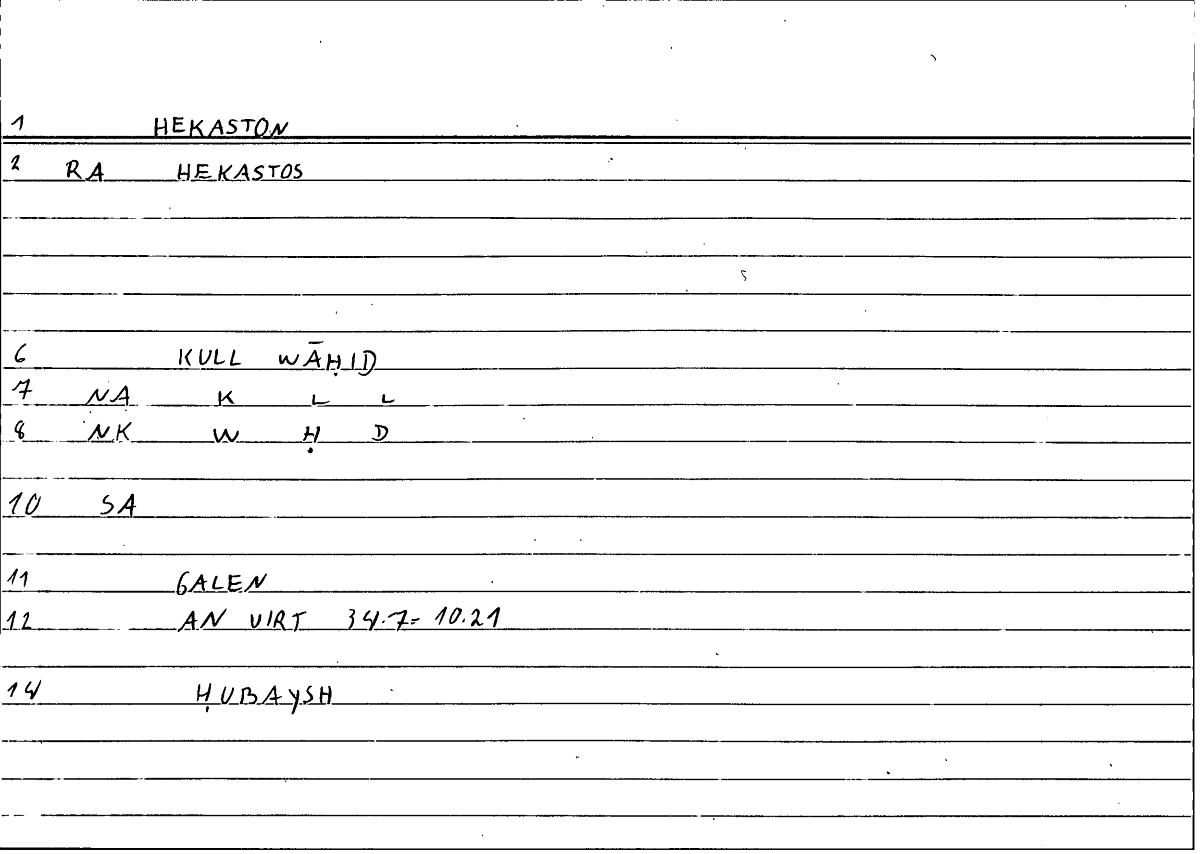 1 HEKASTON
2 RA HEKASTOS
6 KULL WĀḤID
7 NA K L L
8 NK W Ḥ D
10 SA
11 GALEN
12 AN VIRT 34.7= 10.21
14 ḤUBAYSH